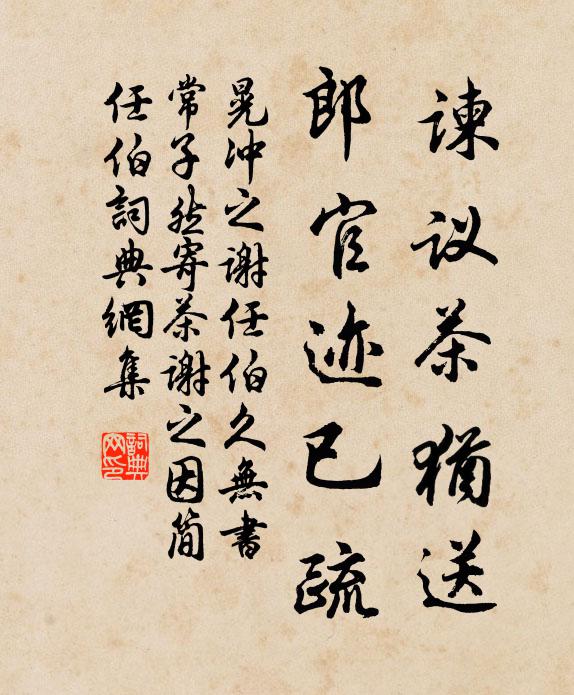 諫议茶犹送
郎官迹已疏
晁冲之谢任伯久無書
常子然寄茶谢之因简
任伯詞典網集
詞典网印